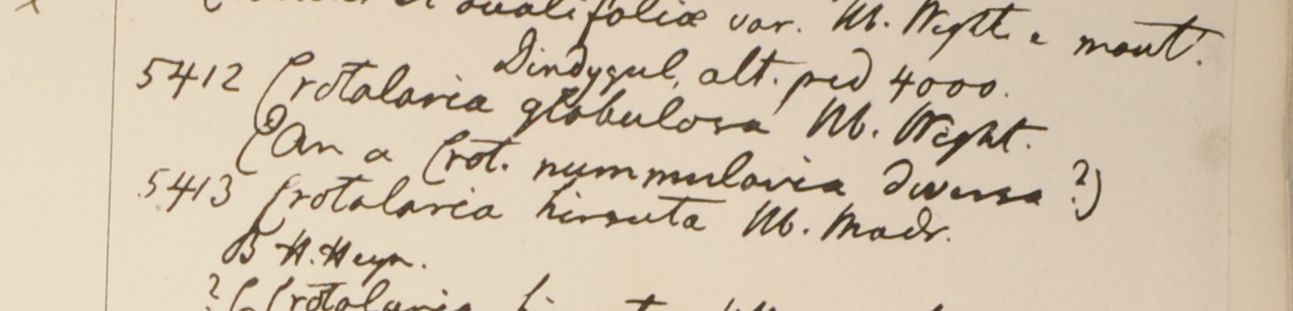 ovalifoliæ var. Hb. Wight e mont.
Dindygul, alt. ped 4000.
5412 Crotalaria globulosa Hb. Wight.
(An a Crot. nummularia diversa?)
5413 Crotalaria hirsuta Hb. Madr.
B H. Heyn.
? C Crotalaria